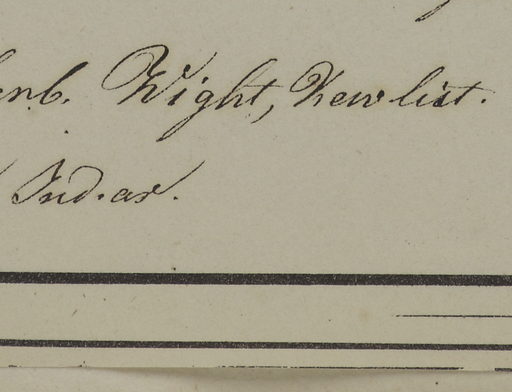 enb. Wight, New list.
Ind. or.